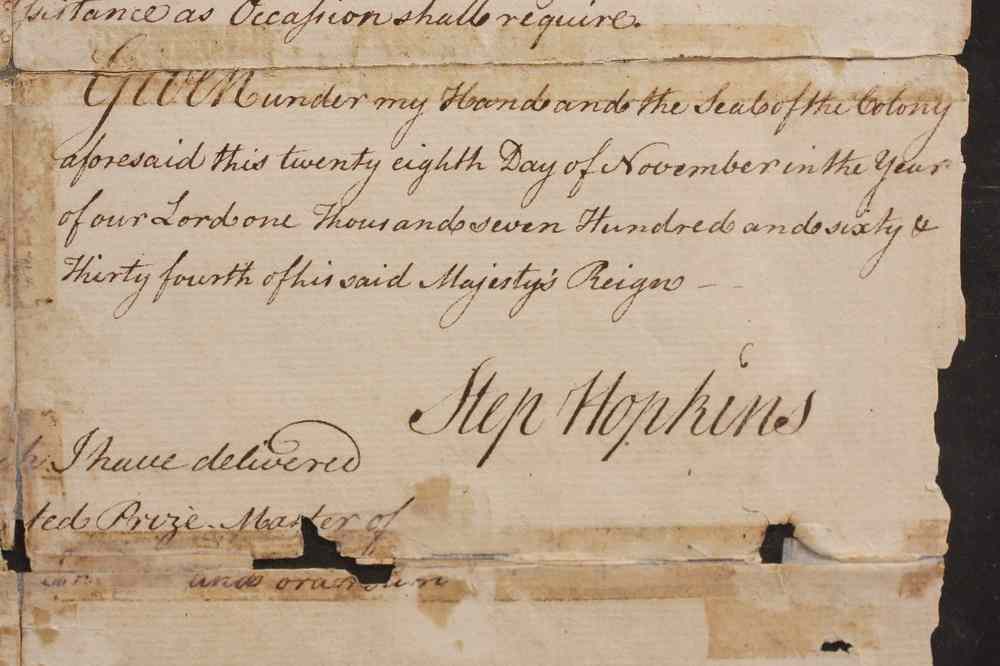 sistance as Occasion shall require.
Given under my Hand and the Seal of the Colony
aforesaid this twenty eighth Day of November in the Year
of our Lord one Thousand seven Hundred and sixty &
Thirty fourth of his said Majesty's Reign
Step Hopkins
I have delivered
ted Prize Master of
and